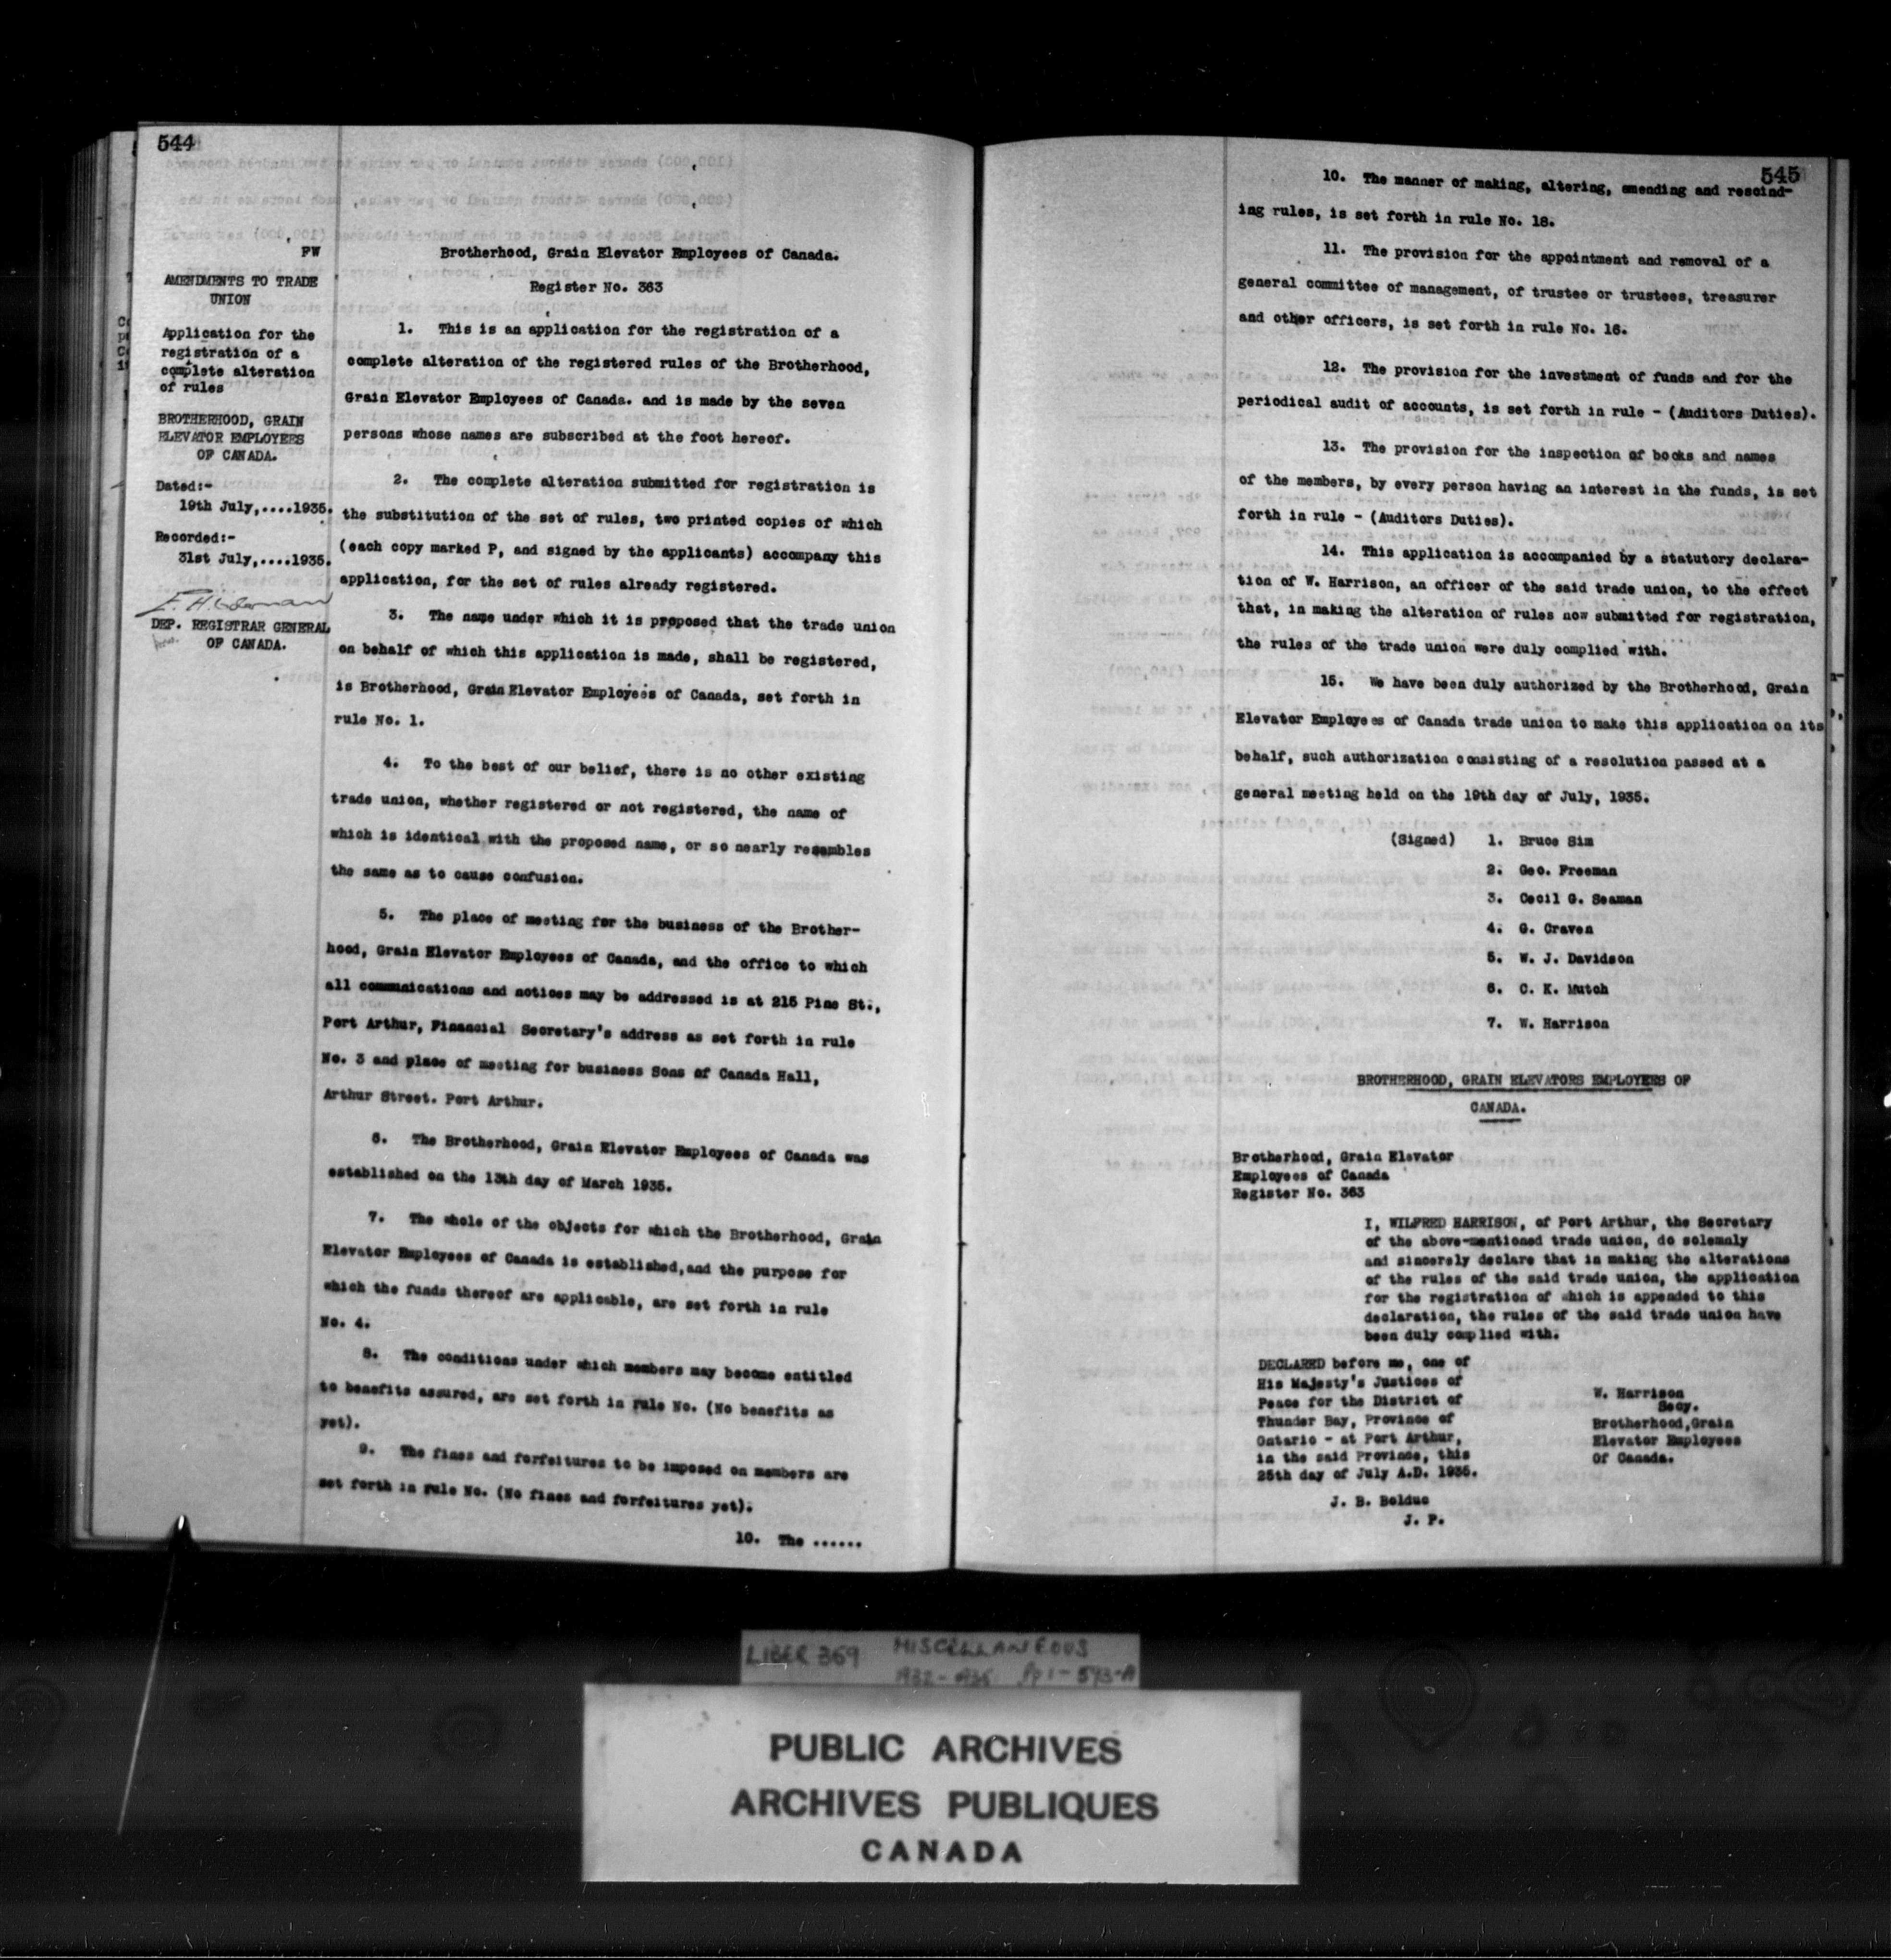 544
FW
AMENDMENTS TO TRADE
UNION
Application for the
registration of a
complete alteration
of rules
BROTHERHOOD, GRAIN
ELEVATOR EMPLOYEES
OF CANADA.
Dated:-
19th July,....1935.
Recorded:-
31st July,....1935.
DEP. REGISTRAR GENERAL
OF CANADA.
Brotherhood, Grain Elevator Employees of Canada.
Register No. 363
1. This is an application for the registration of a
complete alteration of the registered rules of the Brotherhood,
Grain Elevator Employees of Canada. and is made by the seven
persons whose names are subscribed at the foot hereof.
2. The complete alteration submitted for registration is
the substitution of the set of rules, two printed copies of which
(each copy marked P, and signed by the applicants) accompany this
application, for the set of rules already registered.
3. The name under which it is proposed that the trade union
on behalf of which this application is made, shall be registered,
is Brotherhood, Grain Elevator Employees of Canada, set forth in
rule No. 1.
4. To the best of our belief, there is no other existing
trade union, whether registered or not registered, the name of
which is identical with the proposed name, or so nearly resembles
the same as to cause confusion.
5. The place of meeting for the business of the Brother-
hood, Grain Elevator Employees of Canada, and the office to which
all communications and notices may be addressed is at 215 Pine St.,
Port Arthur, Financial Secretary's address as set forth in rule
No. 3 and place of meeting for business Sons of Canada Hall,
Arthur Street. Port Arthur.
6. The Brotherhood, Grain Elevator Employees of Canada was
established on the 13th day of March 1935.
7. The whole of the objects for which the Brotherhood, Grain
Elevator Employees of Canada is established,and the purpose for
which the funds thereof are applicable, are set forth in rule
No. 4.
8. The conditions under which members may become entitled
to benefits assured, are set forth in rule No. (No benefits as
yet).
9. The fines and forfeitures to be imposed on members are
set forth in rule No. (No fines and forfeitures yet).
10. The ......
545
10. The manner of making, altering, amending and rescind-
ing rules, is set forth in rule No. 18.
11. The provision for the appointment and removal of a
general committee of management, of trustee or trustees, treasurer
and other officers, is set forth in rule No. 16.
12. The provision for the investment of funds and for the
periodical audit of accounts, is set forth in rule - (Auditors Duties).
13. The provision for the inspection of books and names
of the members, by every person having an interest in the funds, is set
forth in rule - (Auditors Duties).
14. This application is accompanied by a statutory declara-
tion of W. Harrison, an officer of the said trade union, to the effect
that, in making the alteration of rules now submitted for registration,
the rules of the trade union were duly complied with.
15. We have been duly authorized by the Brotherhood, Grain
Elevator Employees of Canada trade union to make this application on its
behalf, such authorization consisting of a resolution passed at a
general meeting held on the 19th day of July, 1935.
(Signed) 1. Bruce Sim
2. Geo. Freeman
3. Cecil G. Seaman
4. G. Craven
5. W. J. Davidson
6. C. K. Mutch
7. W. Harrison
BROTHERHOOD, GRAIN ELEVATORS EMPLOYEES OF
CANADA.
Brotherhood, Grain Elevator
Employees of Canada
Register No. 363
I, WILFRED HARRISON, of Port Arthur, the Secretary
of the above-mentioned trade union, do solemnly
and sincerely declare that in making the alterations
of the rules of the said trade union, the application
for the registration of which is appended to this
declaration, the rules of the said trade union have
been duly complied with.
DECLARED before me, one of
His Majesty's Justices of
Peace for the District of
Thunder Bay, Province of
Ontario - at Port Arthur,
in the said Province, this
25th day of July A.D. 1935.
J. B. Bolduc
J. P.
W. Harrison
Secy.
Brotherhood,Grain
Elevator Employees
Of Canada.
LIBER 369 MISCELLANEOUS
1932-1935 Pp 1-593-A
PUBLIC ARCHIVES
ARCHIVES PUBLIQUES
CANADA